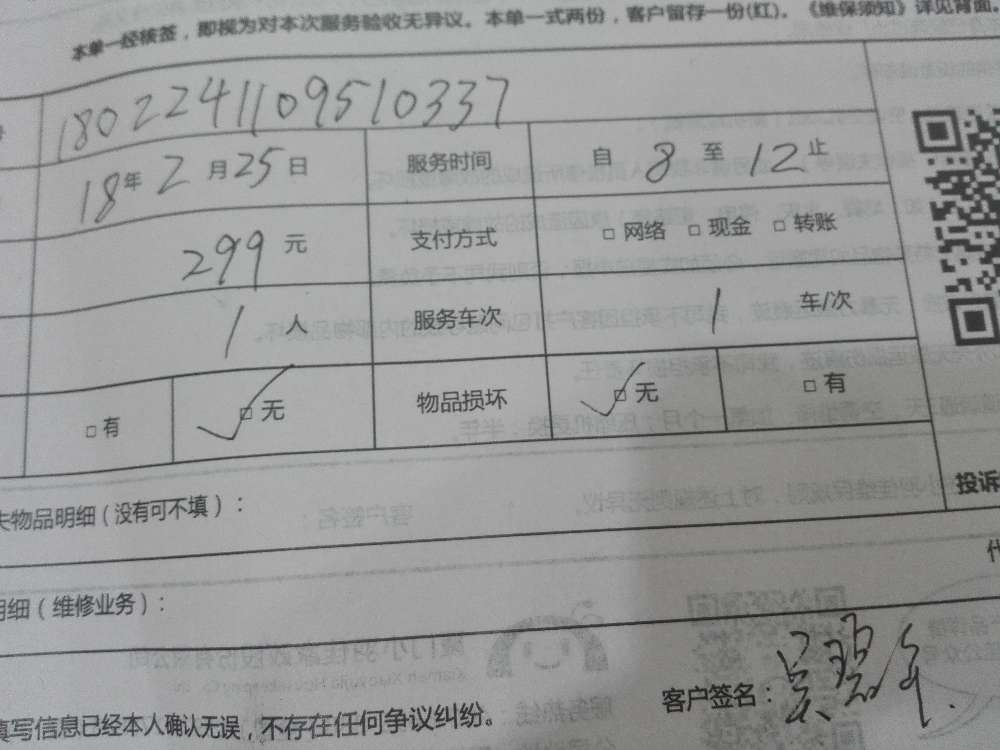 本单一经核签，即视为对本次服务验收无异议。本单一式两份，客户留存一份(红)。《维保须知》详见背面。
180224110951033​7
18年2月25日 服务时间 自8至12止
299元 支付方式 □网络 □现金 □转账
1人 服务车次 1车/次
□有 □无 物品损坏 □无 □有
物品明细（没有可不填）：
投诉
明细（维修业务）：
填写信息已经本人确认无误，不存在任何争议纠纷。
客户签名：